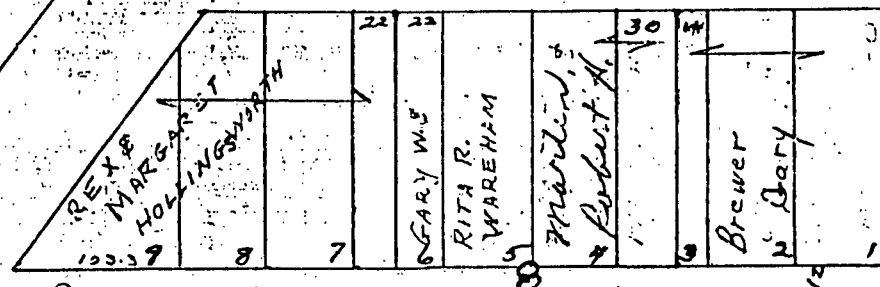 22 22 30
REX &
MARGARET
HOLLINGSWORTH
GARY W. &
RITA R.
WAREHAM
Martin,
Robert H.
Brewer
Gary
9 8 7 6 5 4 3 2 1